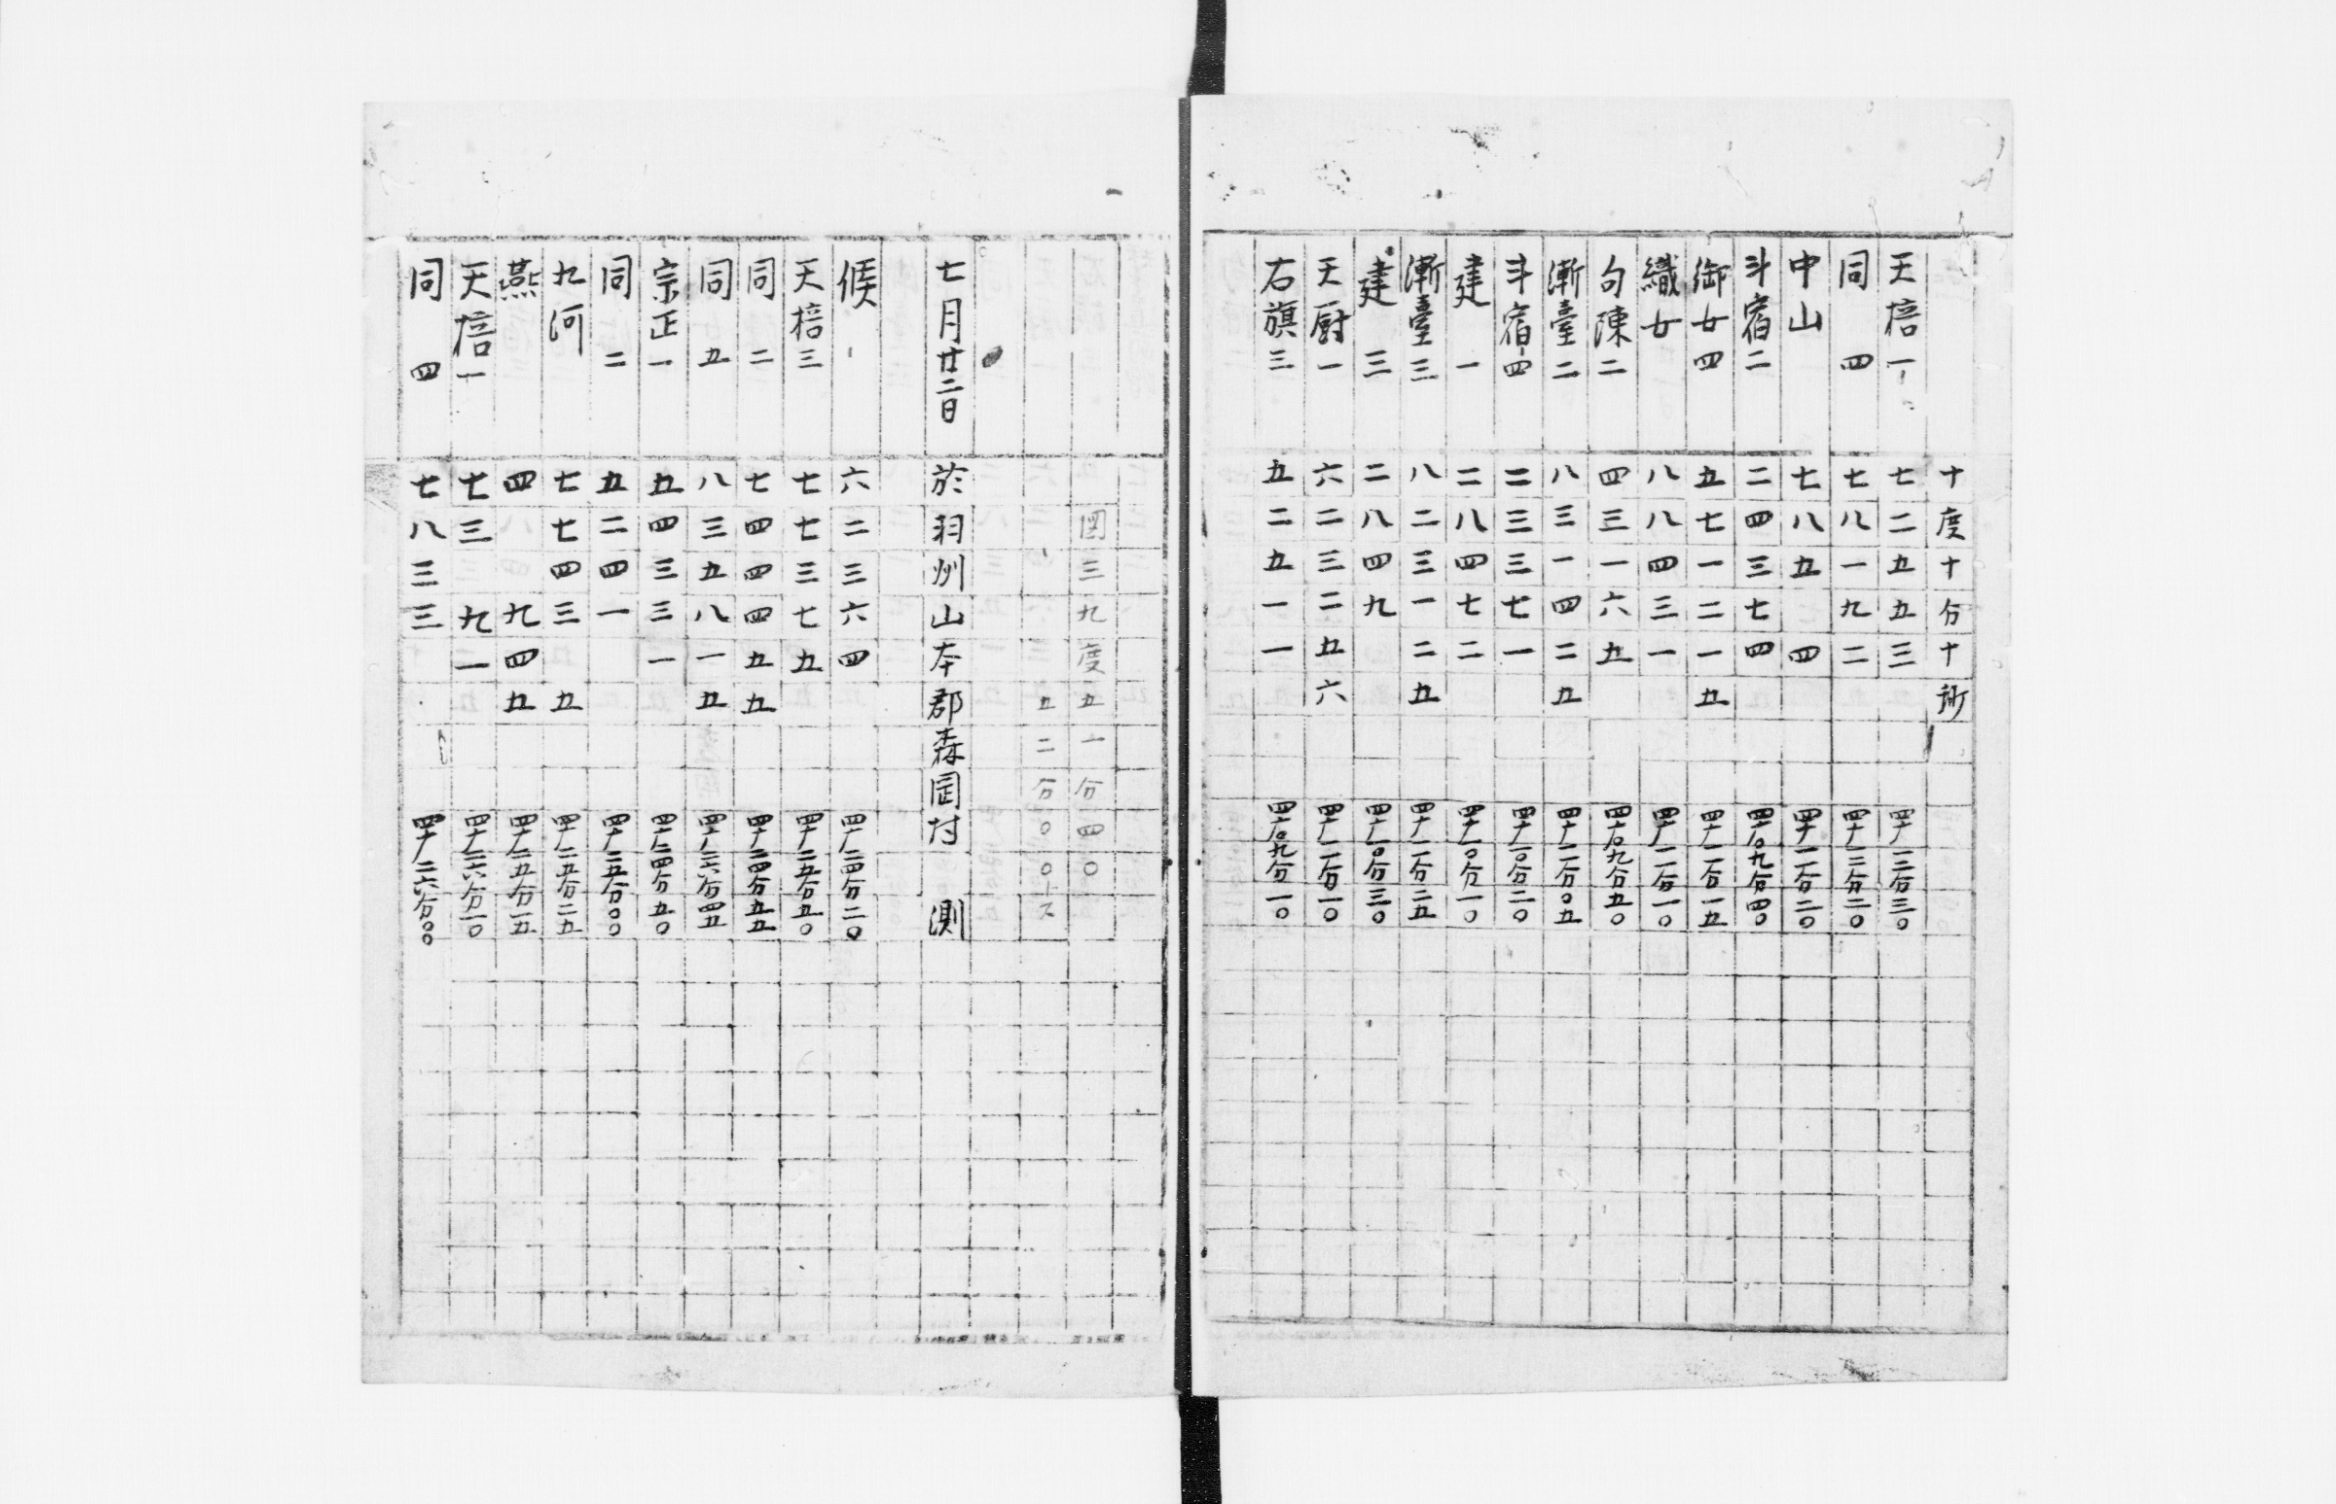 十度十分十秒
天棓一 七二五五三 四十一二分三〇
同四 七八一九二 四十一三分二〇
中山 七八五 四 四十一一分二〇
斗宿二 二四三七四 四十〇九分四〇
御女四 五七一二一五 四十一一分一五
織女 八八四三一 四十一一分一〇
勾陳二 四三一六五 四十〇九分五〇
漸臺二 八三一四二五 四十一一分〇五
斗宿四 二三三七一 四十一〇分二〇
建一 二八四七二 四十一〇分一〇
漸臺三 八二三一二五 四十一一分二五
建三 二八四九 四十一〇分三〇
天厨一 六二三二五六 四十一一分一〇
右旗三 五二五一一 四十〇九分一〇
図三九度五一分四〇
五二分〇〇トス
七月廿二日 於羽州山本郡森岡村 測
候 六二三六四 四十二四分二〇
天棓三 七七三七五 四十二五分五〇
同二 七四四四五五 四十二四分五五
同五 八三五八一五 四十二六分四五
宗正一 五四三三一 四十二四分五〇
同二 五二四一 四十二五分〇〇
九河 七七四三 五 四十二五分二五
燕 四 九四五 四十二五分一五
天棓一 七三 九一 四十二六分一〇
同四 七八三三 四十二六分〇〇